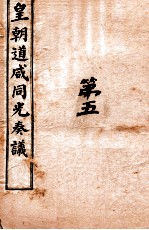 皇朝道咸同光奏議
第五